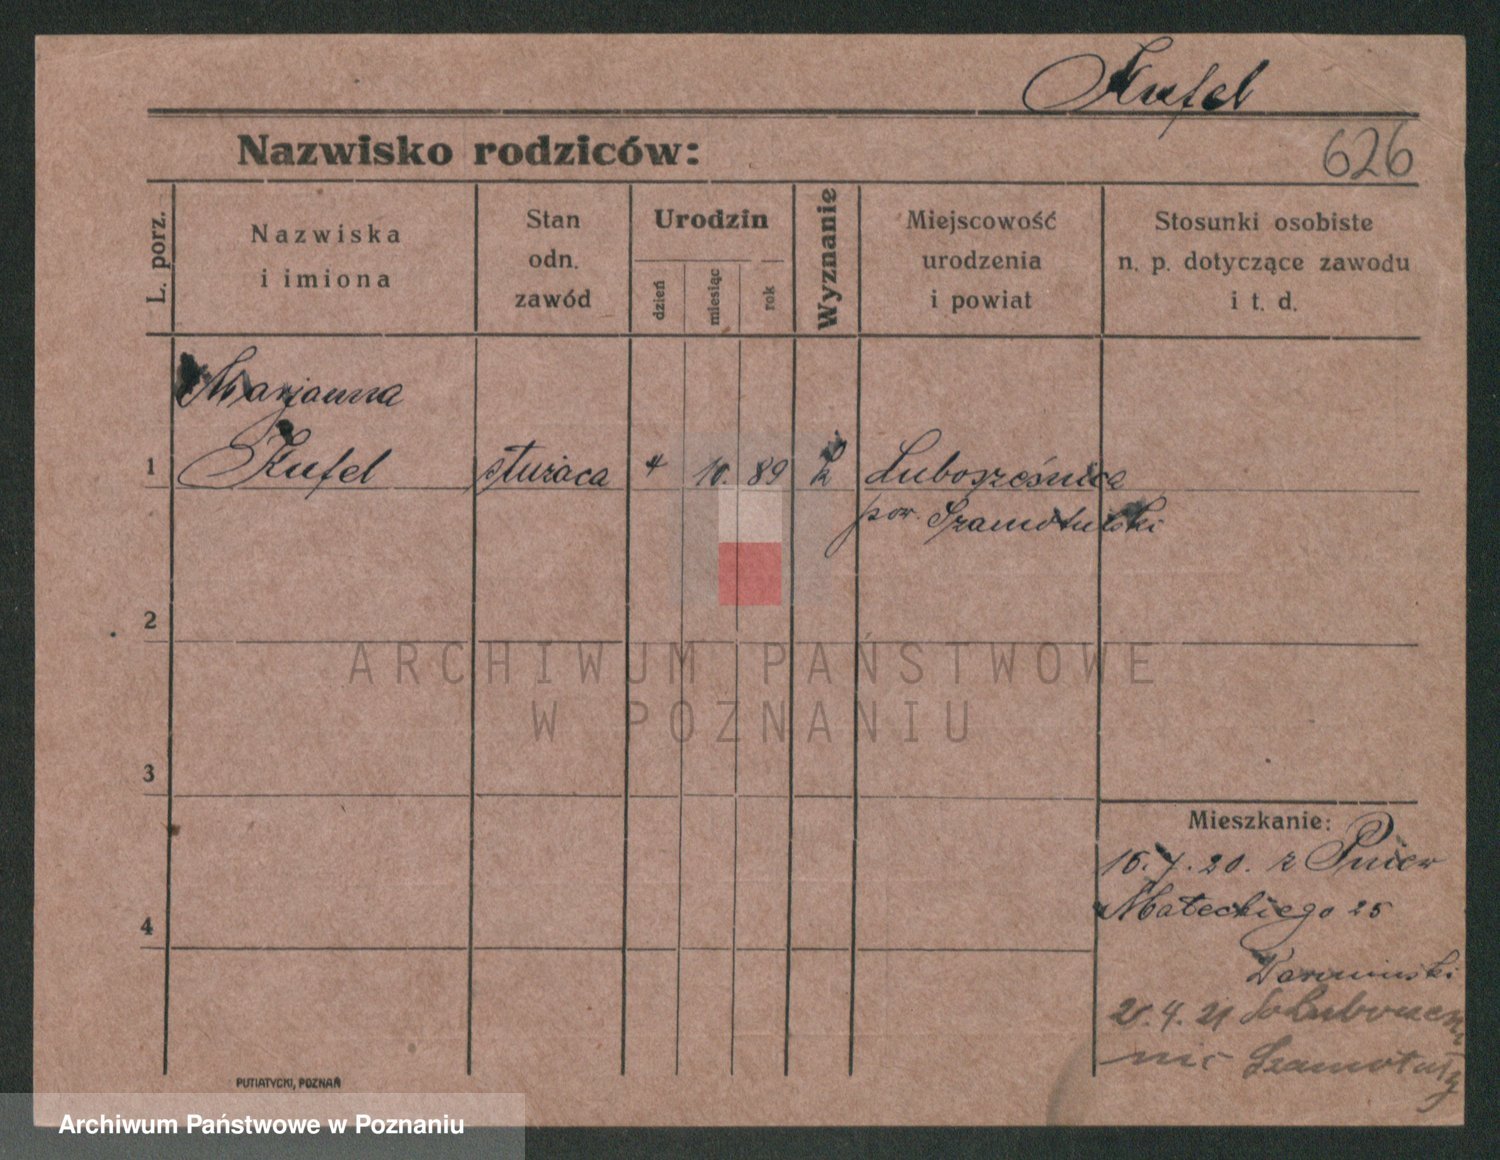 Kufel
Nazwisko rodziców:
626
L. porz.
Nazwiska
i imiona
Stan
odn.
zawód
Urodzin
dzień
miesiąc
rok
Wyznanie
Miejscowość
urodzenia
i powiat
Stosunki osobiste
n. p. dotyczące zawodu
i t. d.
Marjanna
1 Kufel służąca 4 10. 89 k Luboszesnica
pow. Szamotulski
2
ARCHIWUM PAŃSTWOWE
W POZNANIU
3
Mieszkanie:
16.7.20. z Pniew
4
Małeckiego 25
21
Szamotuły
PUTIATYCKI, POZNAŃ
Archiwum Państwowe w Poznaniu